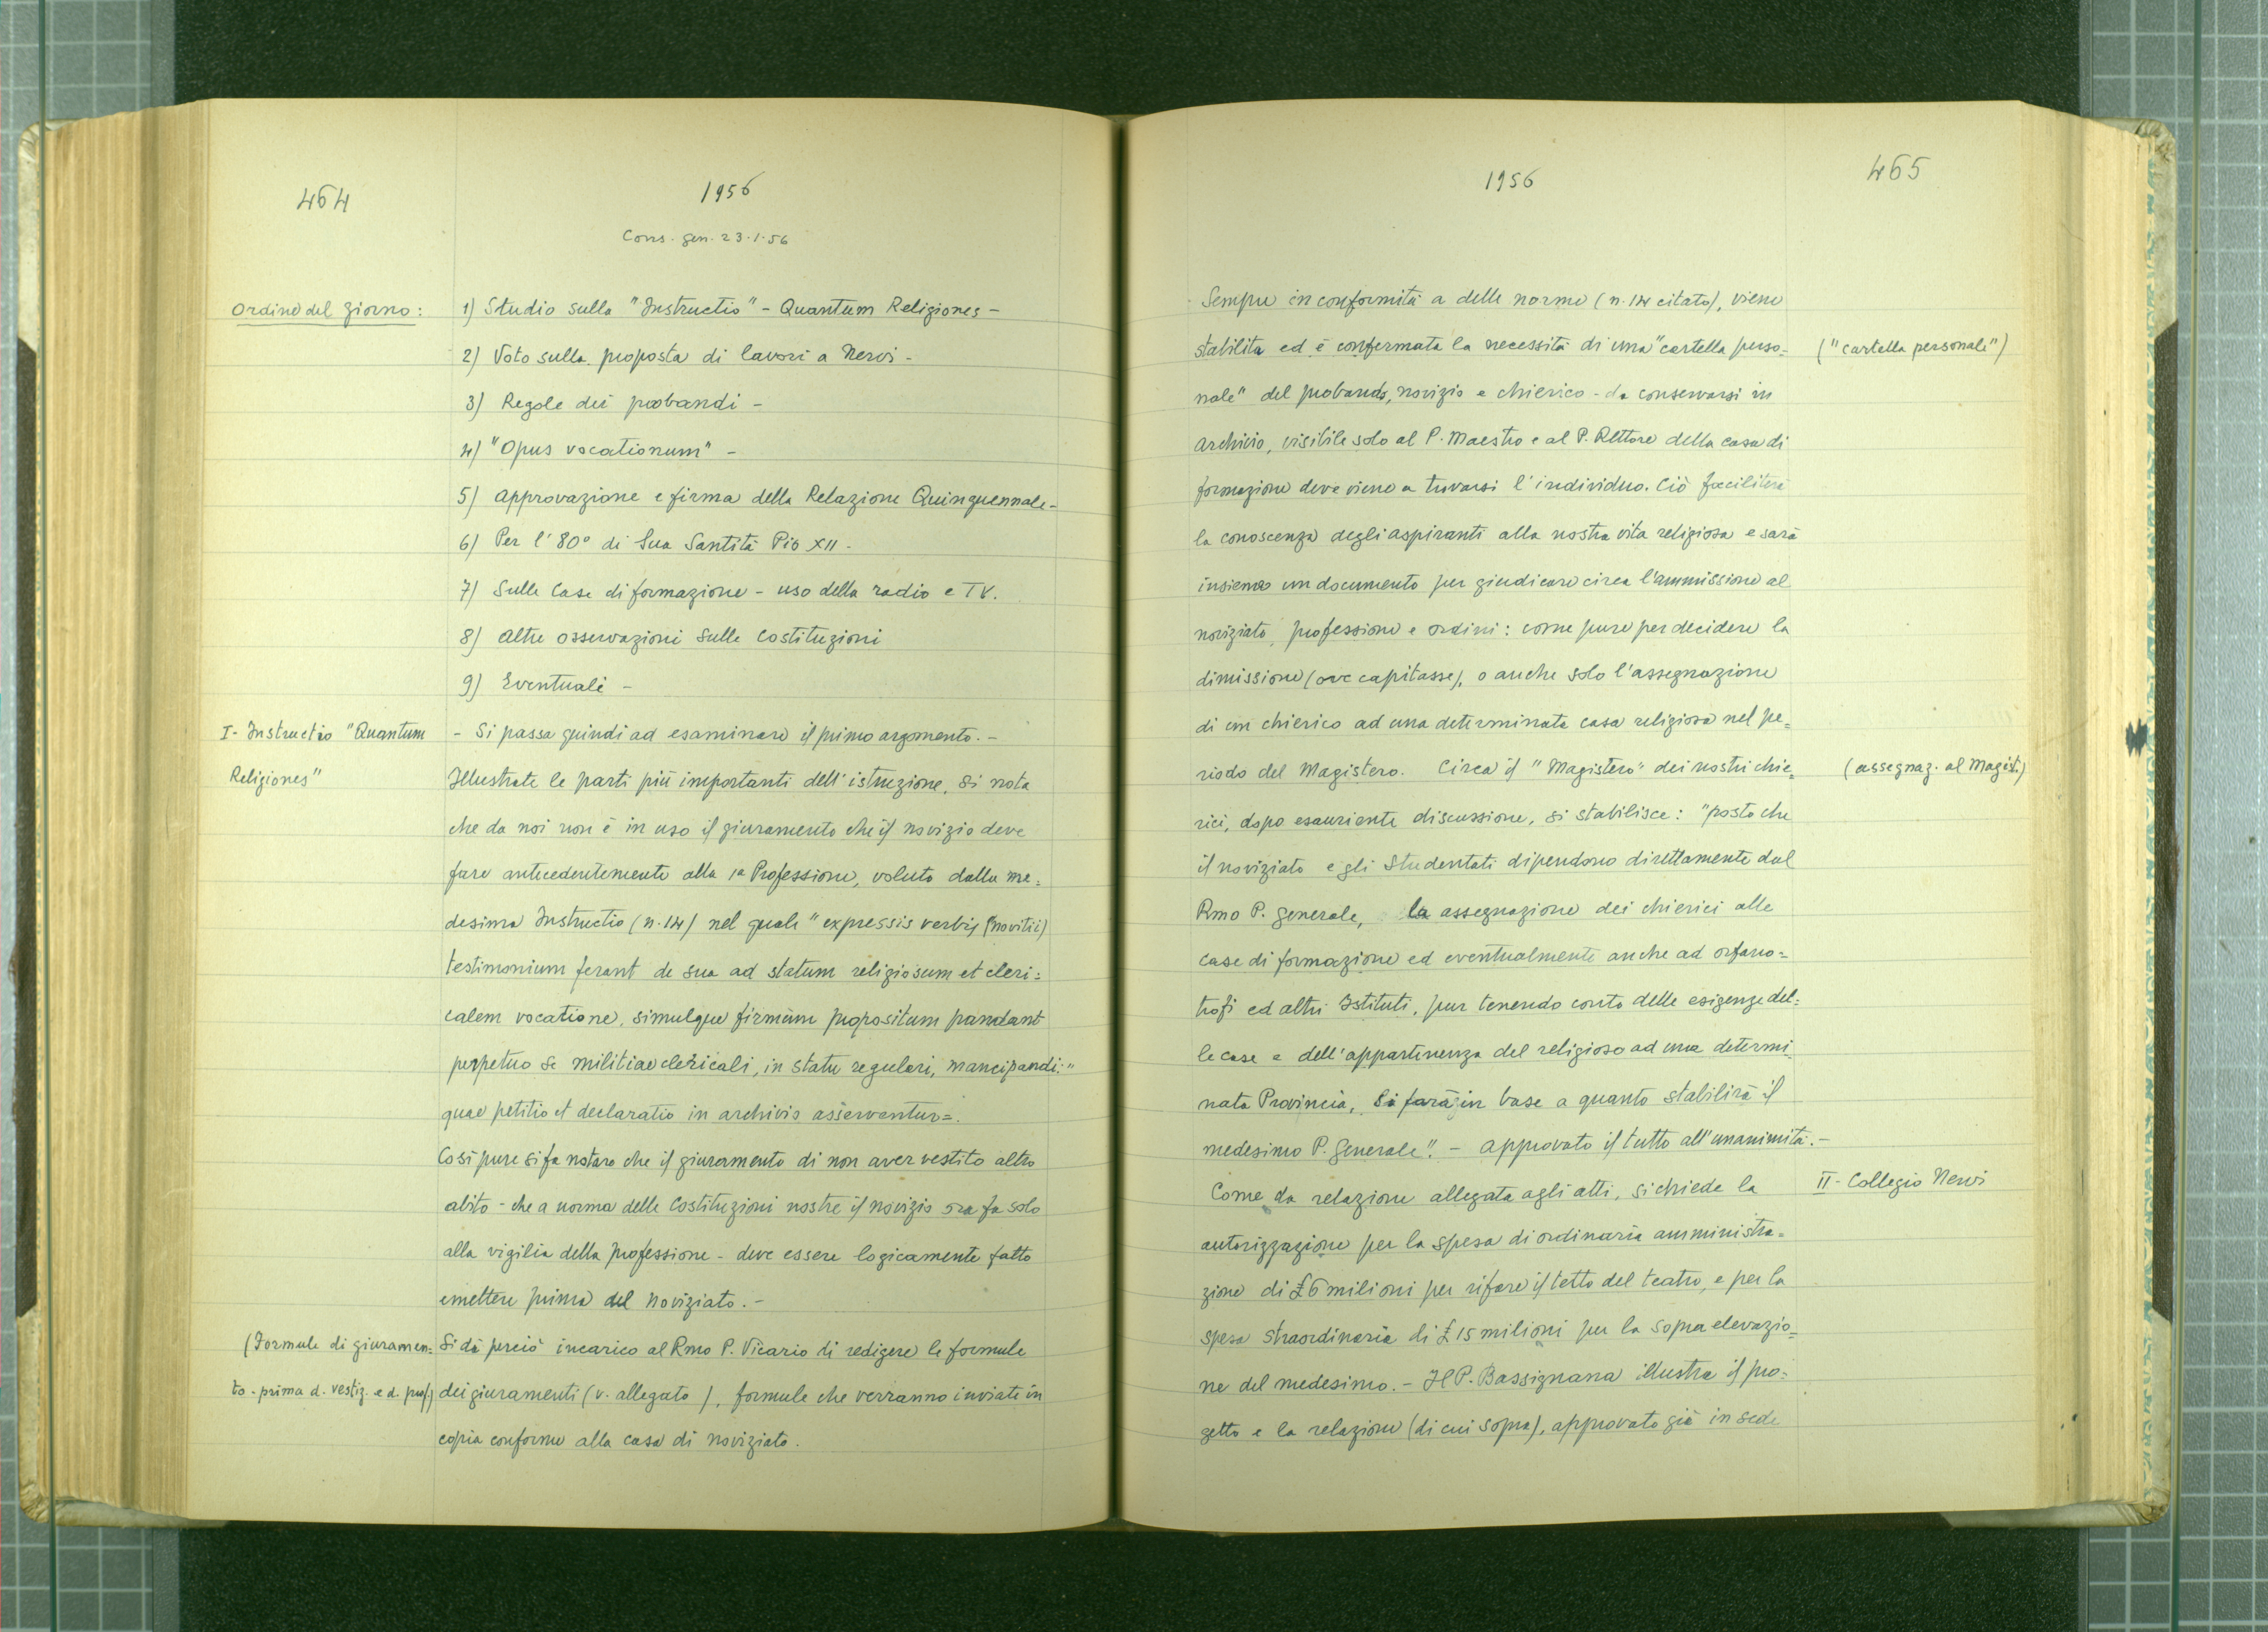 464
1956
Cons. gen. 23.1.56
Ordine del giorno:
1) Studio sulla "Instructio" - Quantum Religiones -
2) Voto sulla proposta di lavori a Nervi -
3) Regole dei probandi -
4) "Opus vocationum" -
5) Approvazione e firma della Relazione Quinquennale -
6) Per l'80° di Sua Santità Pio XII -
7) Sulle Case di formazione - uso della radio e TV.
8) Altre osservazioni sulle Costituzioni
9) Eventuali -
I - Instructio "Quantum
Religiones"
- Si passa quindi ad esaminare il primo argomento. -
Illustrate le parti più importanti dell'istruzione, si nota
che da noi non è in uso il giuramento che il novizio deve
fare antecedentemente alla 1a Professione, voluto dalla me=
desima Instructio (n. 14) nel quale "expressis verbis (novitii)
testimonium ferant de sua ad statum religiosum et cleri=
calem vocatione, simulque firmum propositum pandant
perpetuo se militiae clericali, in statu regulari, mancipandi:"
quae petitio et declaratio in archivis asserventur=.
Così pure si fa notare che il giuramento di non aver vestito altro
abito - che a norma delle Costituzioni nostre il novizio ora fa solo
alla vigilia della professione - deve essere logicamente fatto
emettere prima del noviziato. -
(Formule di giuramen=
to - prima d. vestiz. e d. prof.)
Si dà perciò incarico al Rmo P. Vicario di redigere le formule
dei giuramenti (v. allegato), formule che verranno inviate in
copia conforme alla casa di noviziato.
465
1956
Sempre in conformità a delle norme (n. 14 citato), viene
stabilita ed è confermata la necessità di una "cartella perso=
("cartella personale")
nale" del probando, novizio e chierico - da conservarsi in
archivio, visibile solo al P. Maestro e al P. Rettore della casa di
formazione dove viene a trovarsi l'individuo. Ciò faciliterà
la conoscenza degli aspiranti alla nostra vita religiosa e sarà
insieme un documento per giudicare circa l'ammissione al
noviziato, professione e ordini: come pure per decidere la
dimissione (ove capitasse), o anche solo l'assegnazione
di un chierico ad una determinata casa religiosa nel pe=
riodo del Magistero. Circa il "Magistero" dei nostri chie=
(assegnaz. al Magist.)
rici, dopo esauriente discussione, si stabilisce: "posto che
il noviziato e gli Studentati dipendono direttamente dal
Rmo P. Generale, la assegnazione dei chierici alle
case di formazione ed eventualmente anche ad orfano=
trofi ed altri Istituti, pur tenendo conto delle esigenze del=
le case e dell'appartenenza del religioso ad una determi=
nata Provincia, si farà in base a quanto stabilirà il
medesimo P. Generale". - Approvato il tutto all'unanimità. -
II - Collegio Nervi
Come da relazione allegata agli atti, si chiede la
autorizzazione per la spesa di ordinaria amministra=
zione di £ 6 milioni per rifare il tetto del teatro, e per la
spesa straordinaria di £ 15 milioni per la sopra elevazio=
ne del medesimo. - Il P. Bassignana illustra il pro=
getto e la relazione (di cui sopra), approvato già in sede